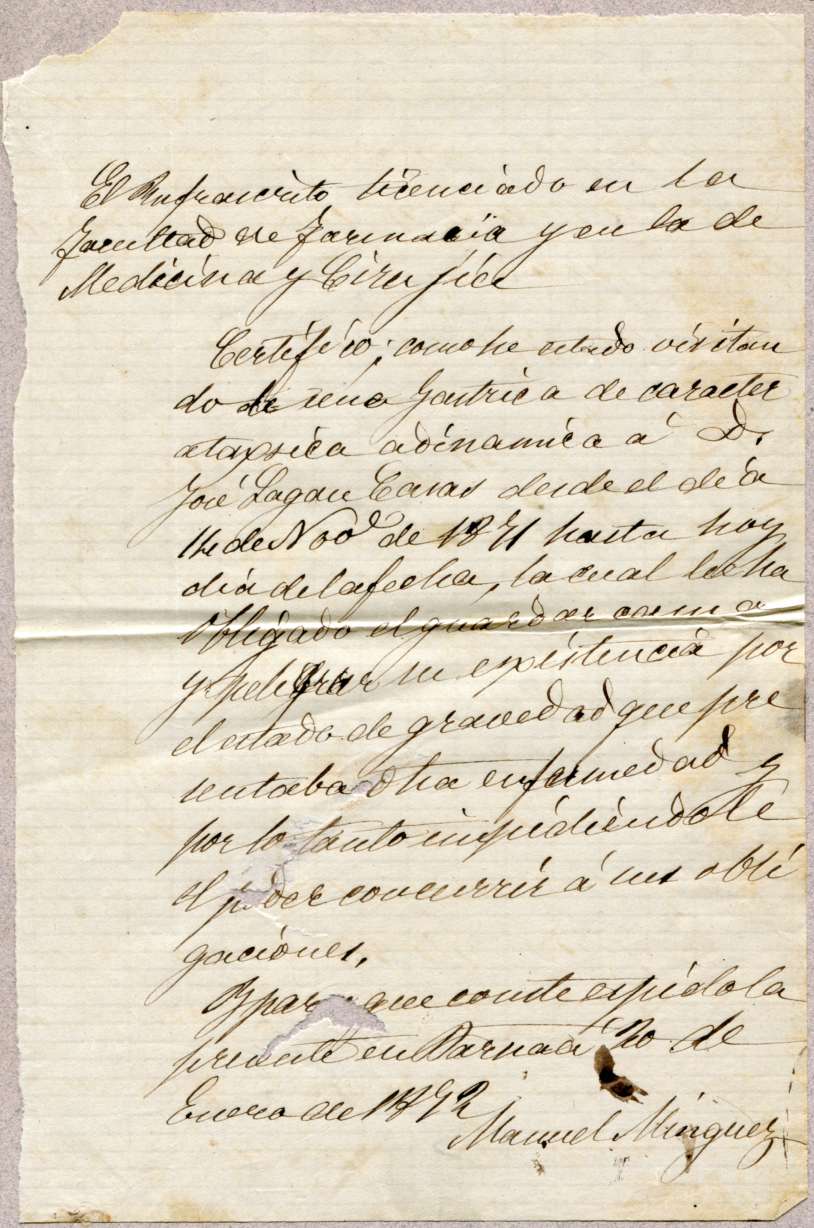 El Infrascrito licenciado en la
facultad de farmacia y en la de
Medicina y Cirujía
Certifico; como he estado visitan
do de una Gastrica de caracter
ataxsica adinamica á D.
José Lagau Casas desde el día
14 de Nove de 1871 hasta hoy
día de la fecha, la cual le ha
obligado el guardar cama
y peligrar su existencia por
el estado de gravedad que pre
sentaba dha enfermedad y
por lo tanto impidiéndole
el poder concurrir á sus obli
gaciones,
Y para que conste espido la
presente en Barna á 20 de
Enero de 1872
Manuel Minguez